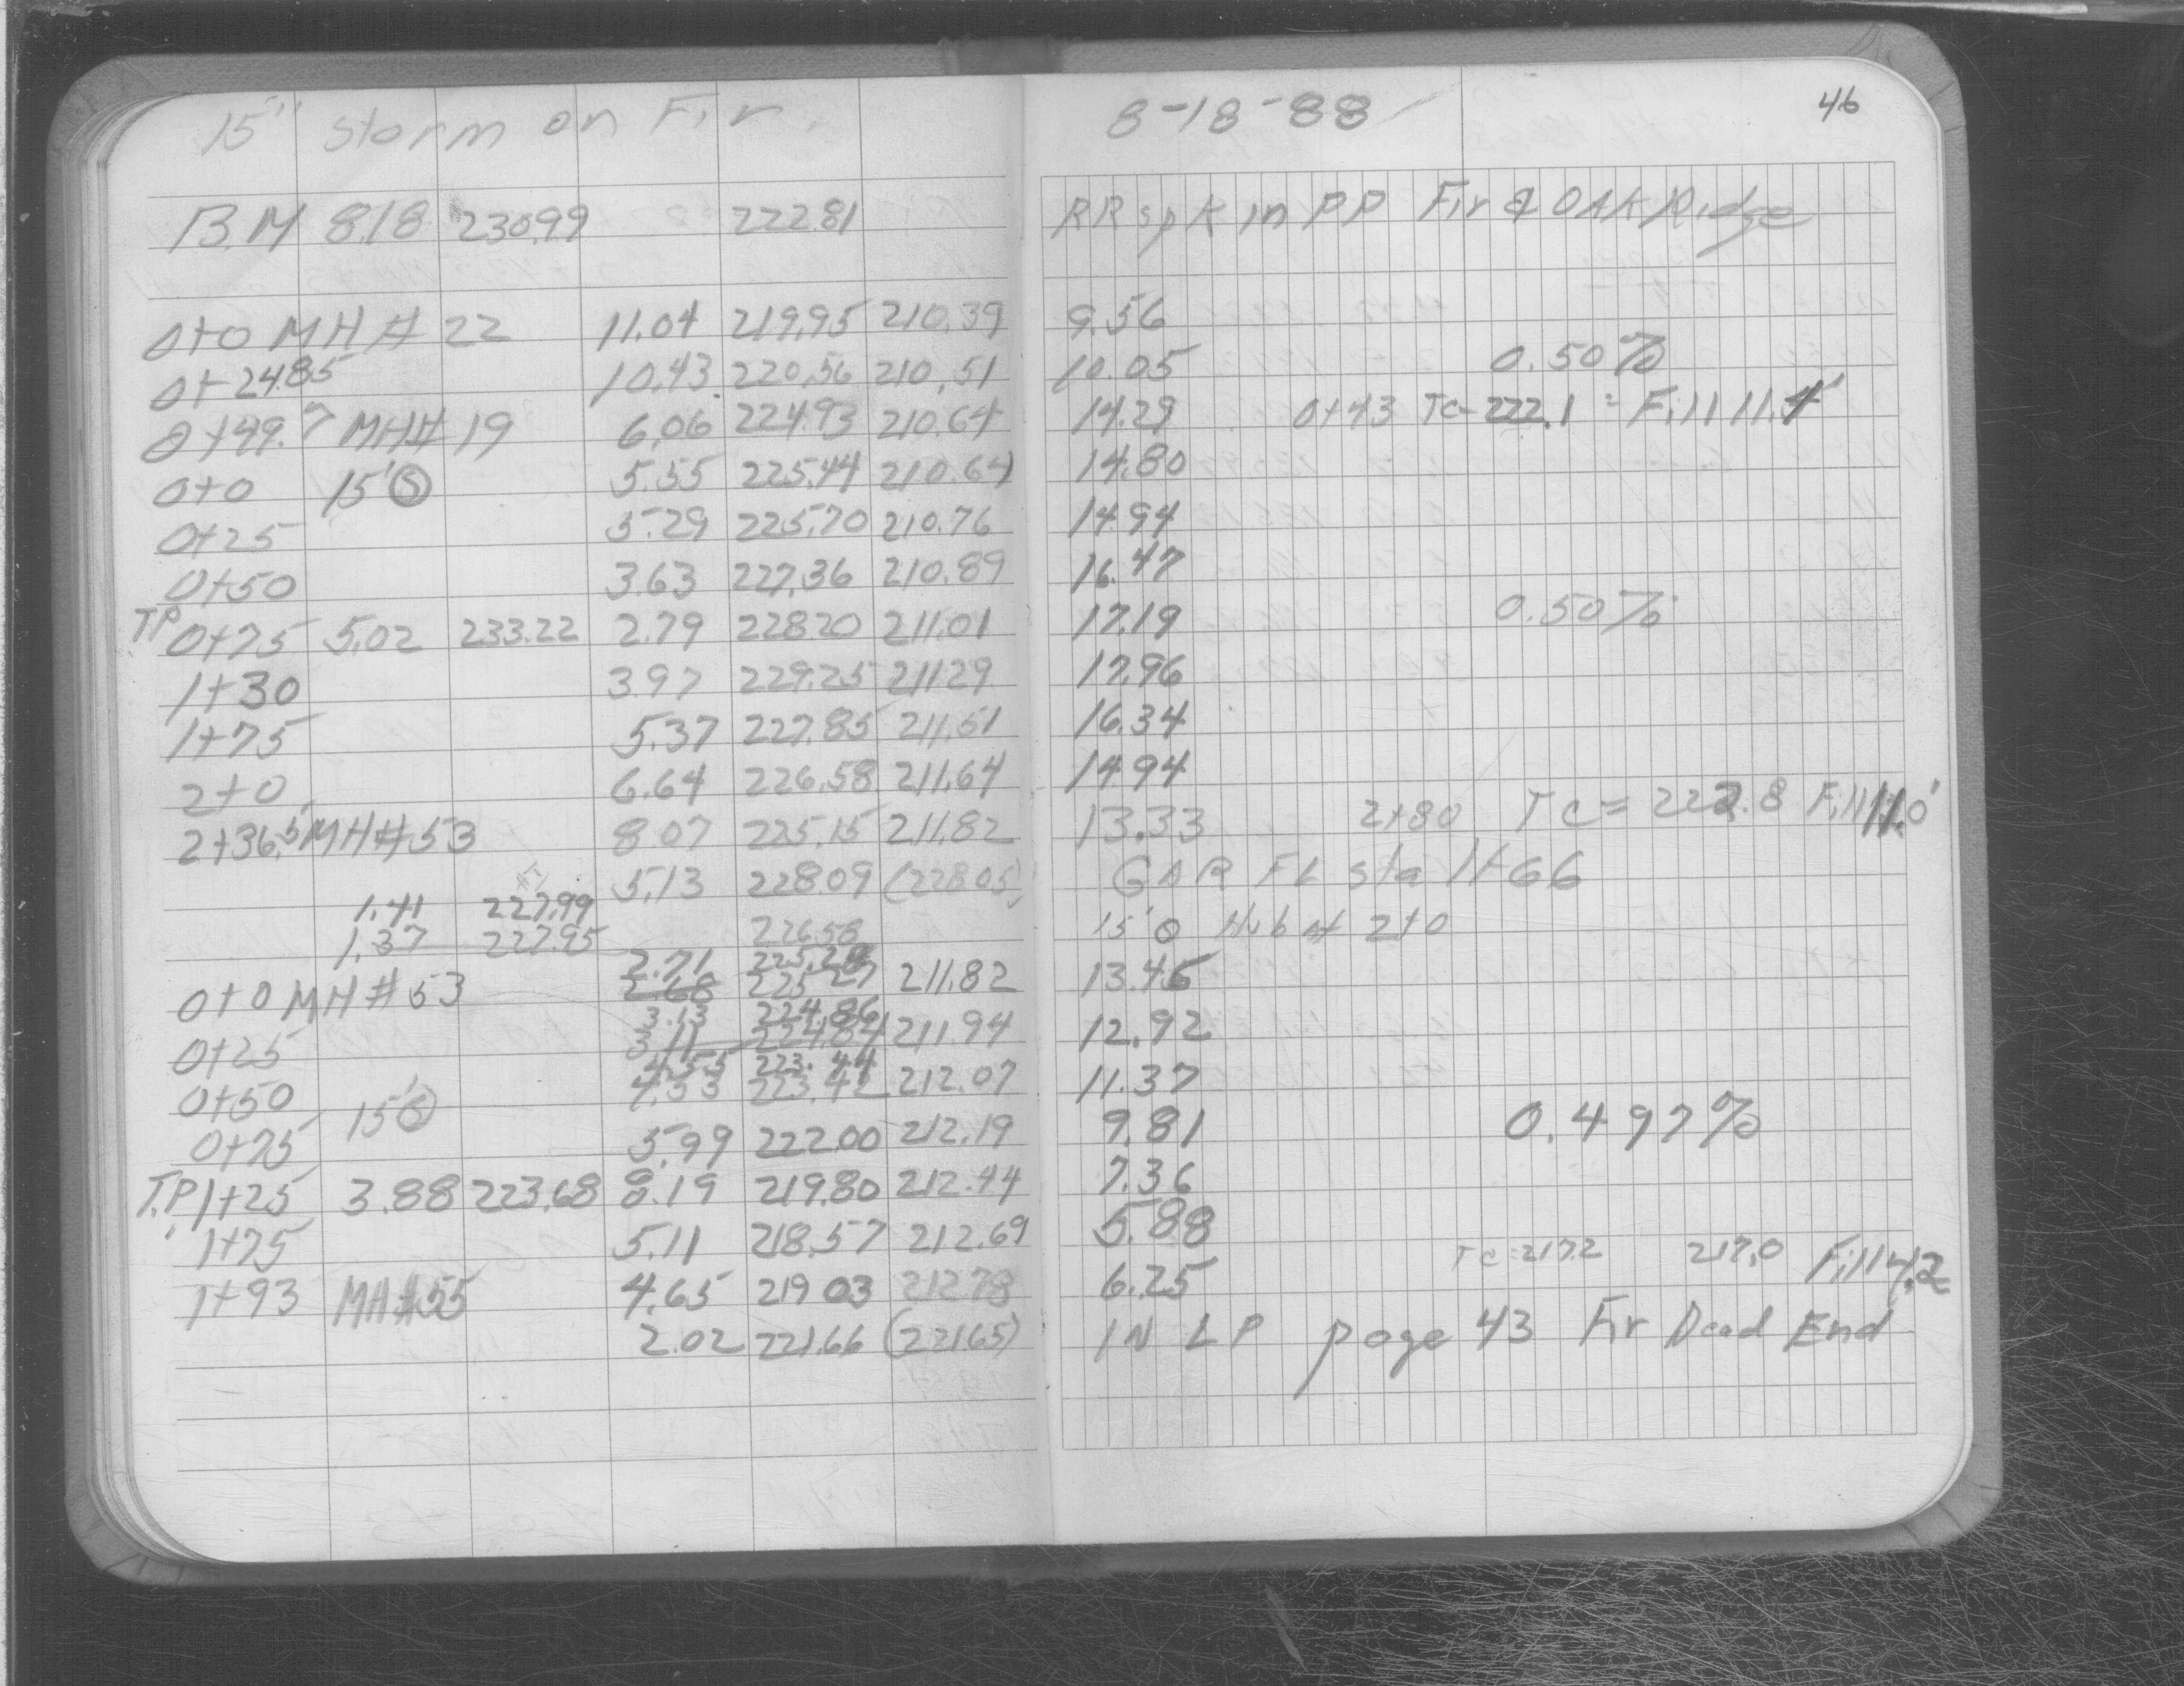 15" Storm on Fir. 8-18-88 46
B.M 8.18 230.99 222.81 RR spk in PP Fir & OAK Ridge
0+0 MH # 22 11.04 219.95 210.39 9.56
0+24.85 10.43 220.56 210.51 10.05 0.50%
0+49.7 MH# 19 6.06 224.93 210.64 14.29 0+43 Tc=222.1 = Fill 11.4'
0+0 15' Ⓢ 5.55 225.44 210.64 14.80
0+25 5.29 225.70 210.76 14.94
0+50 3.63 227.36 210.89 16.47
TP 0+75 5.02 233.22 2.79 228.20 211.01 17.19 0.50%
1+30 3.97 229.25 211.29 17.96
1+75 5.37 227.85 211.51 16.34
2+0 6.64 226.58 211.64 14.94
2+36.5 MH#53 8.07 225.15 211.82 13.33 2+80 Tc = 222.8 Fill 11.0'
5.13 228.09 (228.05) GAR FL sta 1+66
1.41 227.99
1.37 227.95 226.58 15' O Hub at 2+0
2.71 225.28
0+0 MH # 53 2.68 225.27 211.82 13.46
3.13 224.86
0+25 3.11 224.84 211.94 12.92
4.55 223.44
0+50 4.53 223.42 212.07 11.37
15' Ⓢ
0+75 5.99 222.00 212.19 9.81 0.497%
T.P. 1+25 3.88 223.68 8.19 219.80 212.44 7.36
1+75 5.11 218.57 212.69 5.88
1+93 MH#55 4.65 219.03 212.78 6.25 Tc=217.2 217.0 Fill 4.2
2.02 221.66 (221.65) IN LP page 43 Fir Dead End